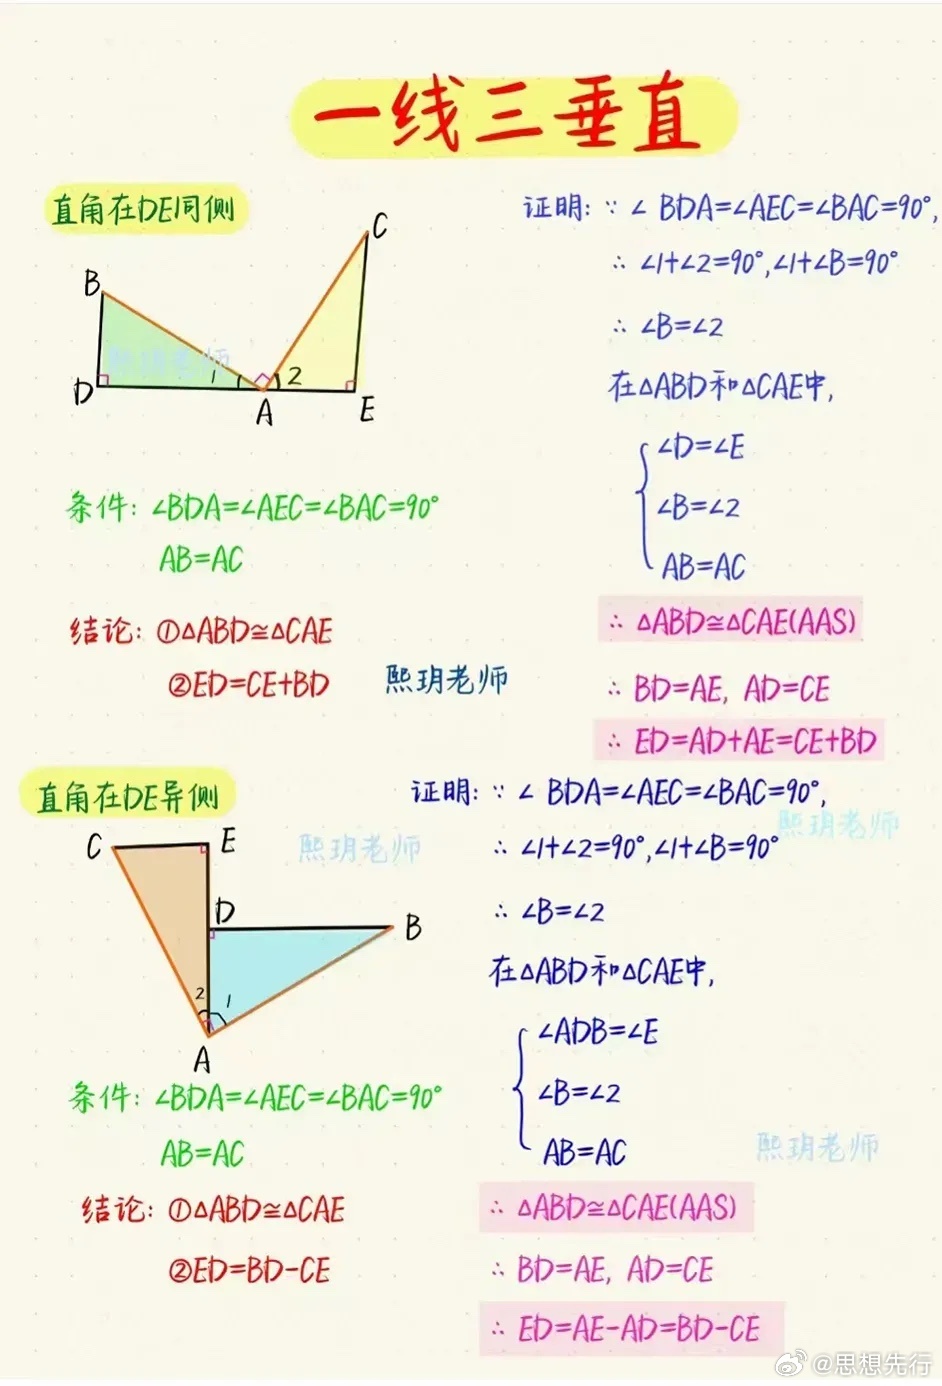 一线三垂直
直角在DE同侧
B
C
D
1
2
A
E
熙玥老师
条件: ∠BDA=∠AEC=∠BAC=90°
AB=AC
结论: ①△ABD≌△CAE
②ED=CE+BD
熙玥老师
证明: ∵ ∠ BDA=∠AEC=∠BAC=90°,
∴ ∠1+∠2=90°,∠1+∠B=90°
∴ ∠B=∠2
在△ABD和△CAE中,
∠D=∠E
∠B=∠2
AB=AC
∴ △ABD≌△CAE(AAS)
∴ BD=AE, AD=CE
∴ ED=AD+AE=CE+BD
直角在DE异侧
C
E
D
B
2
1
A
熙玥老师
条件: ∠BDA=∠AEC=∠BAC=90°
AB=AC
结论: ①△ABD≌△CAE
②ED=BD-CE
证明: ∵ ∠ BDA=∠AEC=∠BAC=90°,
熙玥老师
∴ ∠1+∠2=90°,∠1+∠B=90°
∴ ∠B=∠2
在△ABD和△CAE中,
∠ADB=∠E
∠B=∠2
AB=AC
熙玥老师
∴ △ABD≌△CAE(AAS)
∴ BD=AE, AD=CE
∴ ED=AE-AD=BD-CE
@思想先行